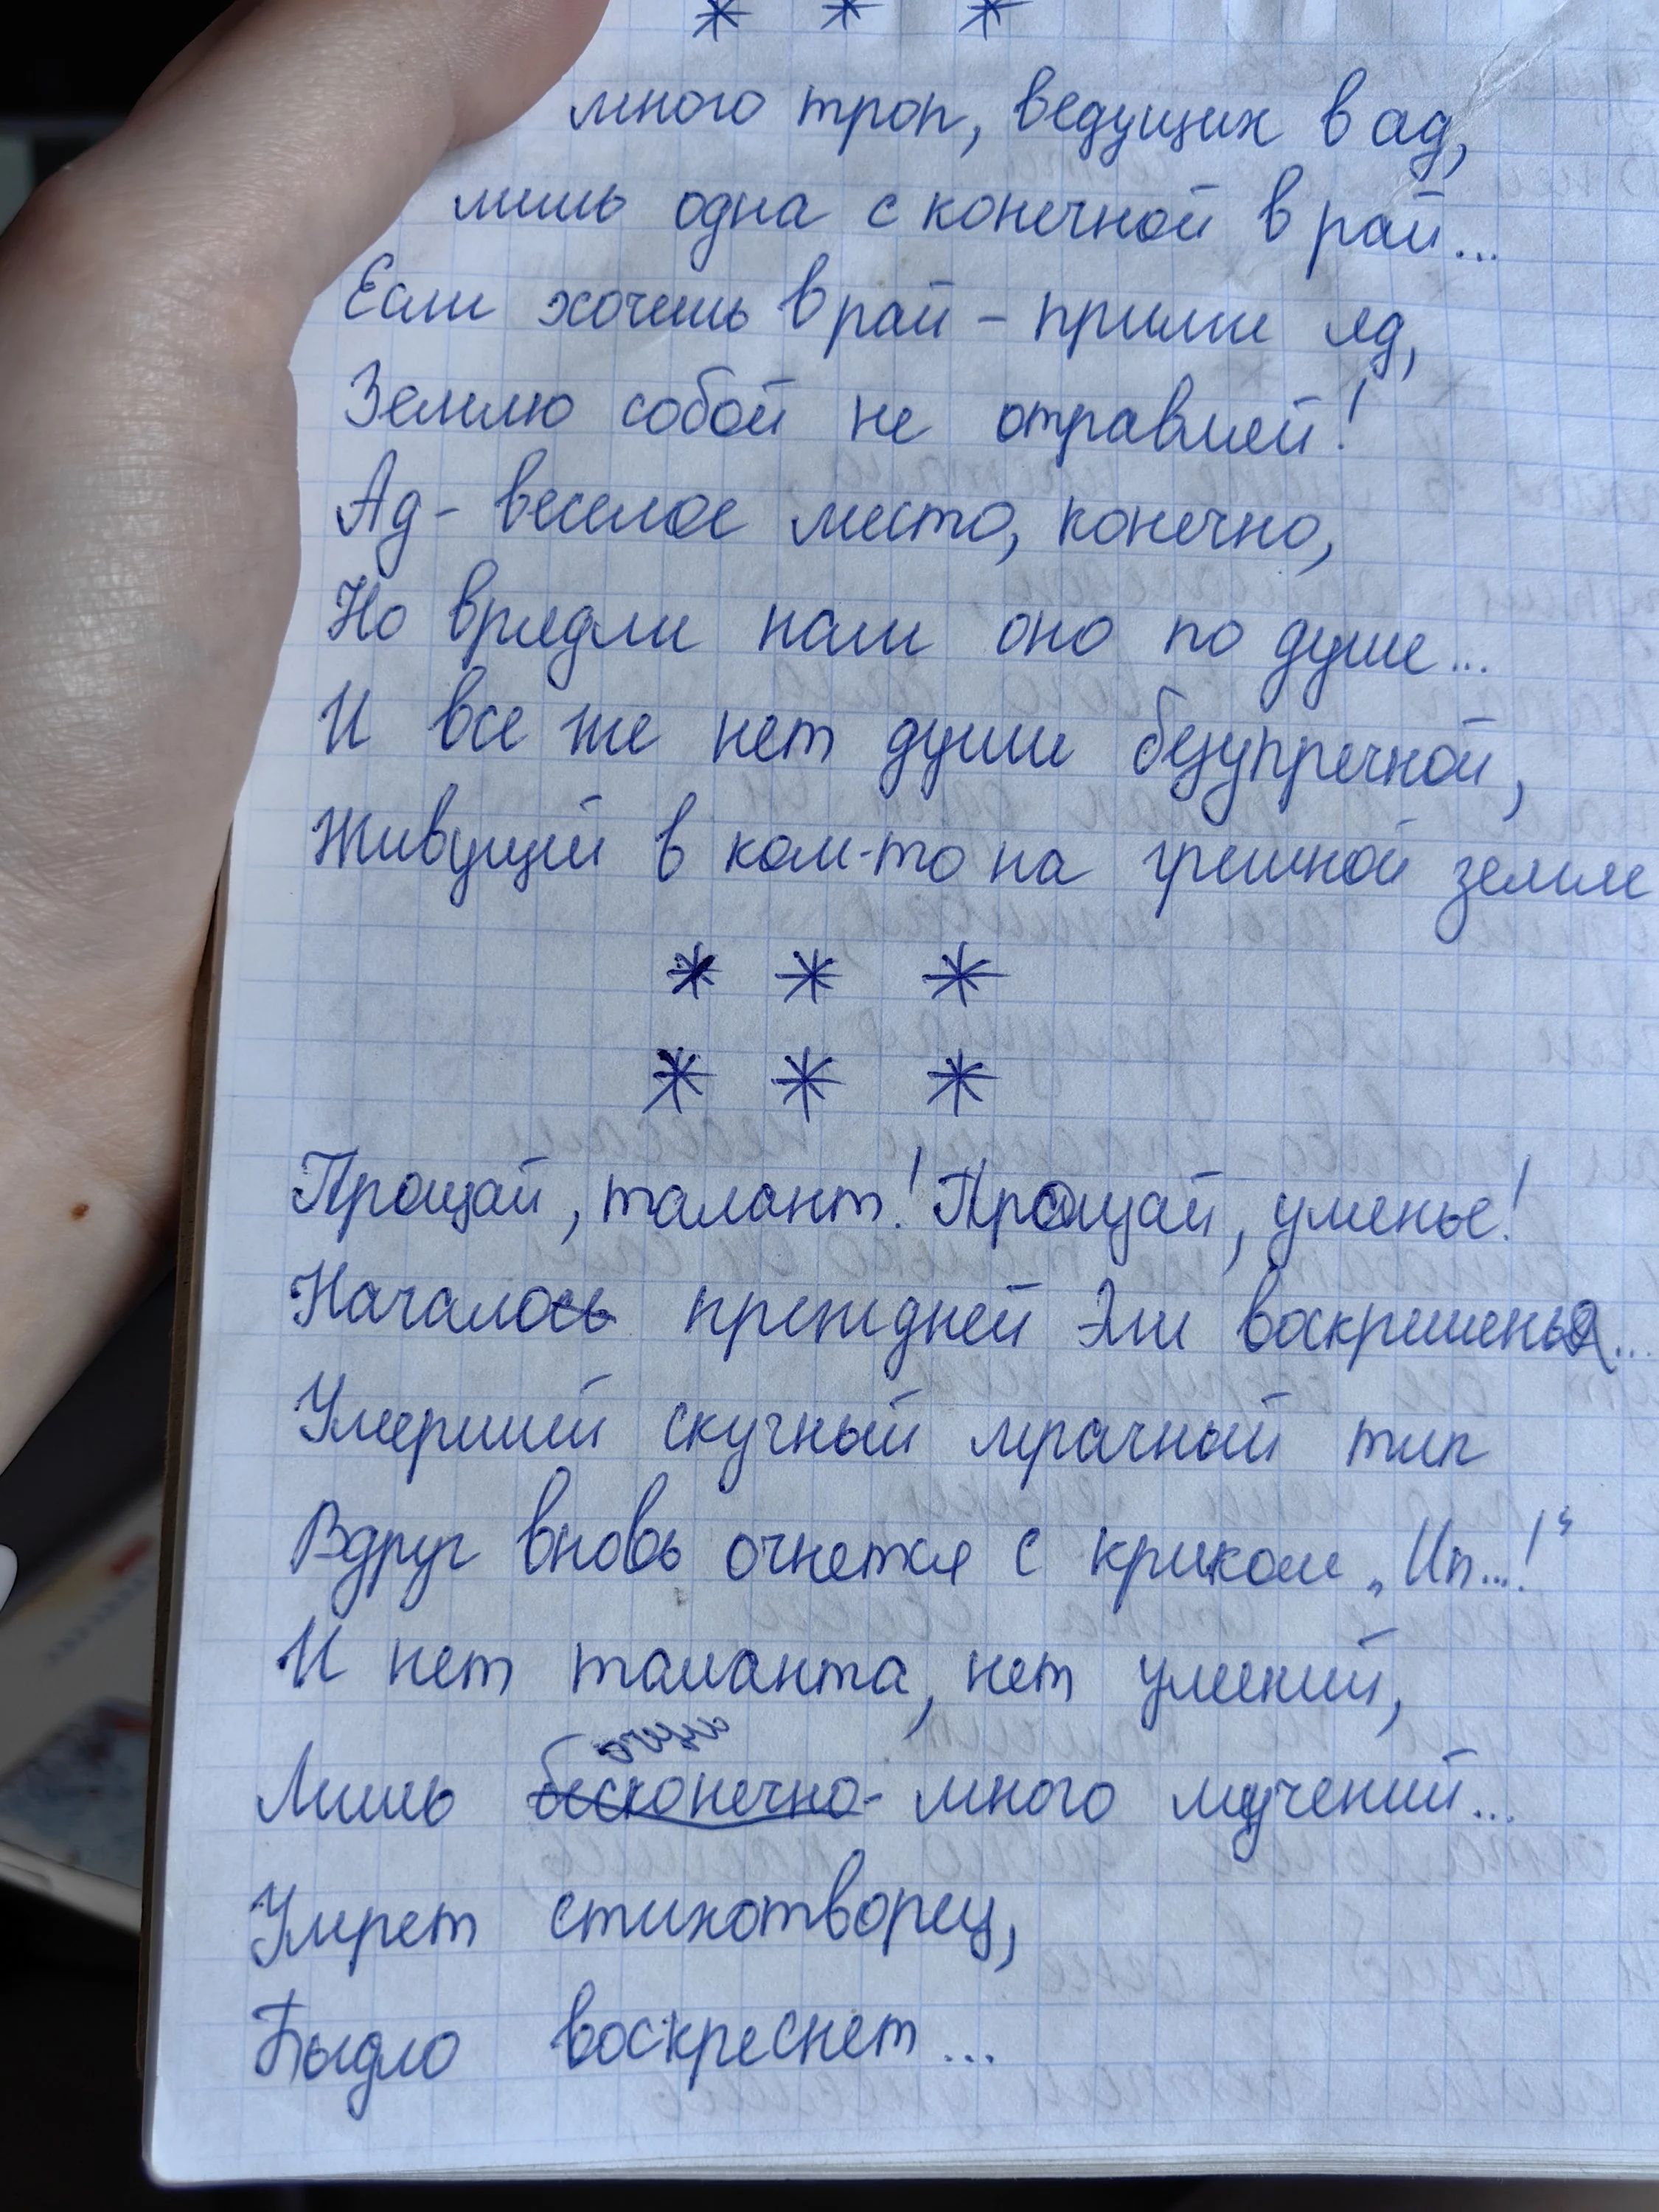 * * *
много троп, ведущих в ад,
лишь одна с конечной в рай...
Если хочешь в рай - прими яд,
Землю собой не отравляй!
Ад - веселое место, конечно,
Но врядли нам оно по душе...
И все же нет души безупречной,
Живущей в ком-то на грешной земле
* * *
* * *
Прощай, талант! Прощай, уменье!
Начало прежней Эли воскрешенья...
Умерший скучный мрачный тип
Вдруг вновь очнется с криком „Ип...!“
И нет таланта, нет умений,
Лишь бесконечно много мучений...
Умрет стихотворец,
Быдло воскреснет...